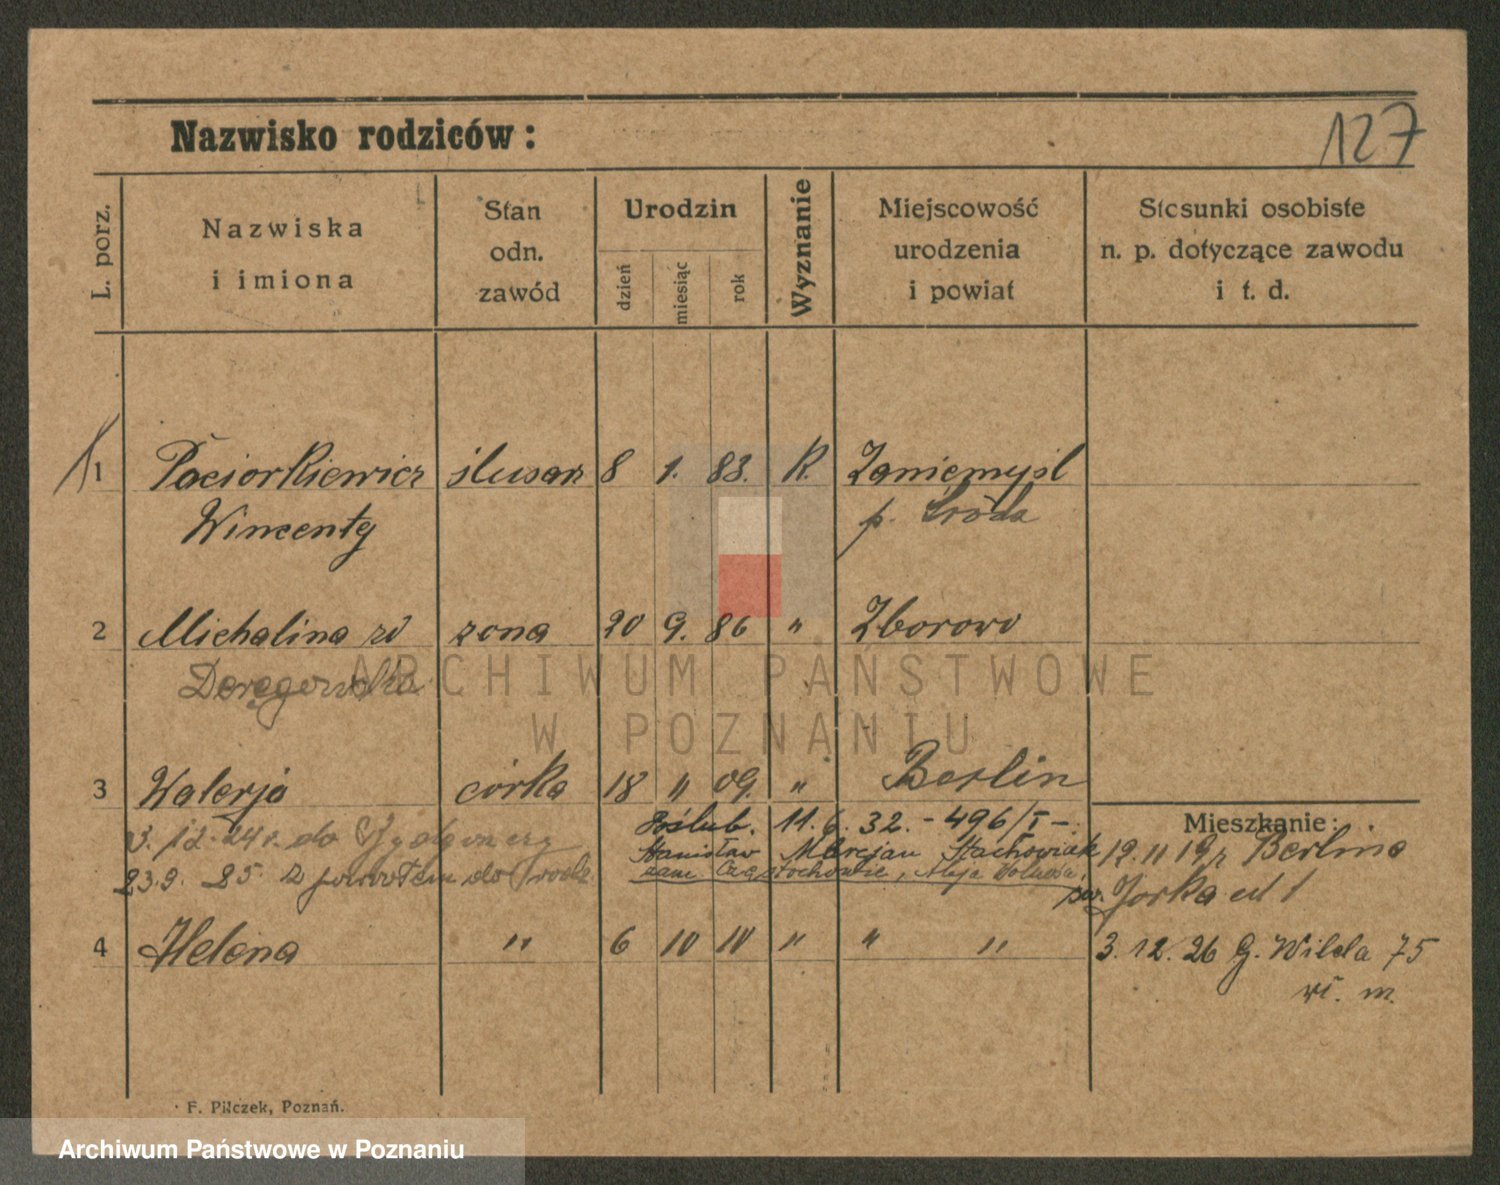 127
Nazwisko rodziców:
L. porz.
Nazwiska
i imiona
Stan
odn.
zawód
Urodzin
dzień
miesiąc
rok
Wyznanie
Miejscowość
urodzenia
i powiat
Stosunki osobiste
n. p. dotyczące zawodu
i t. d.
1 Paciorkiewicz ślusarz 8 1. 83. R. Zaniemyśl
Wincenty p. Środa
2 Michalina zd żona 20 9. 86 " Zborowo
3 Walerja córka 18 " 09. " Berlin
Mieszkanie:
3. 12. 24 r. do
Poślub. 11. 6. 32. - 496/I -
Stanisław Marcjan Stachowiak
12. 11 19 r Berlina
23.9. 25. z powrotem do rodz.
zam Częstochowie, Aleja
Jorka 1
4 Helena " 6 10 10 " " " 3. 12. 26 G. Wilda 75
m.
F. Pilczek, Poznań.
ARCHIWUM PAŃSTWOWE
W POZNANIU
Archiwum Państwowe w Poznaniu